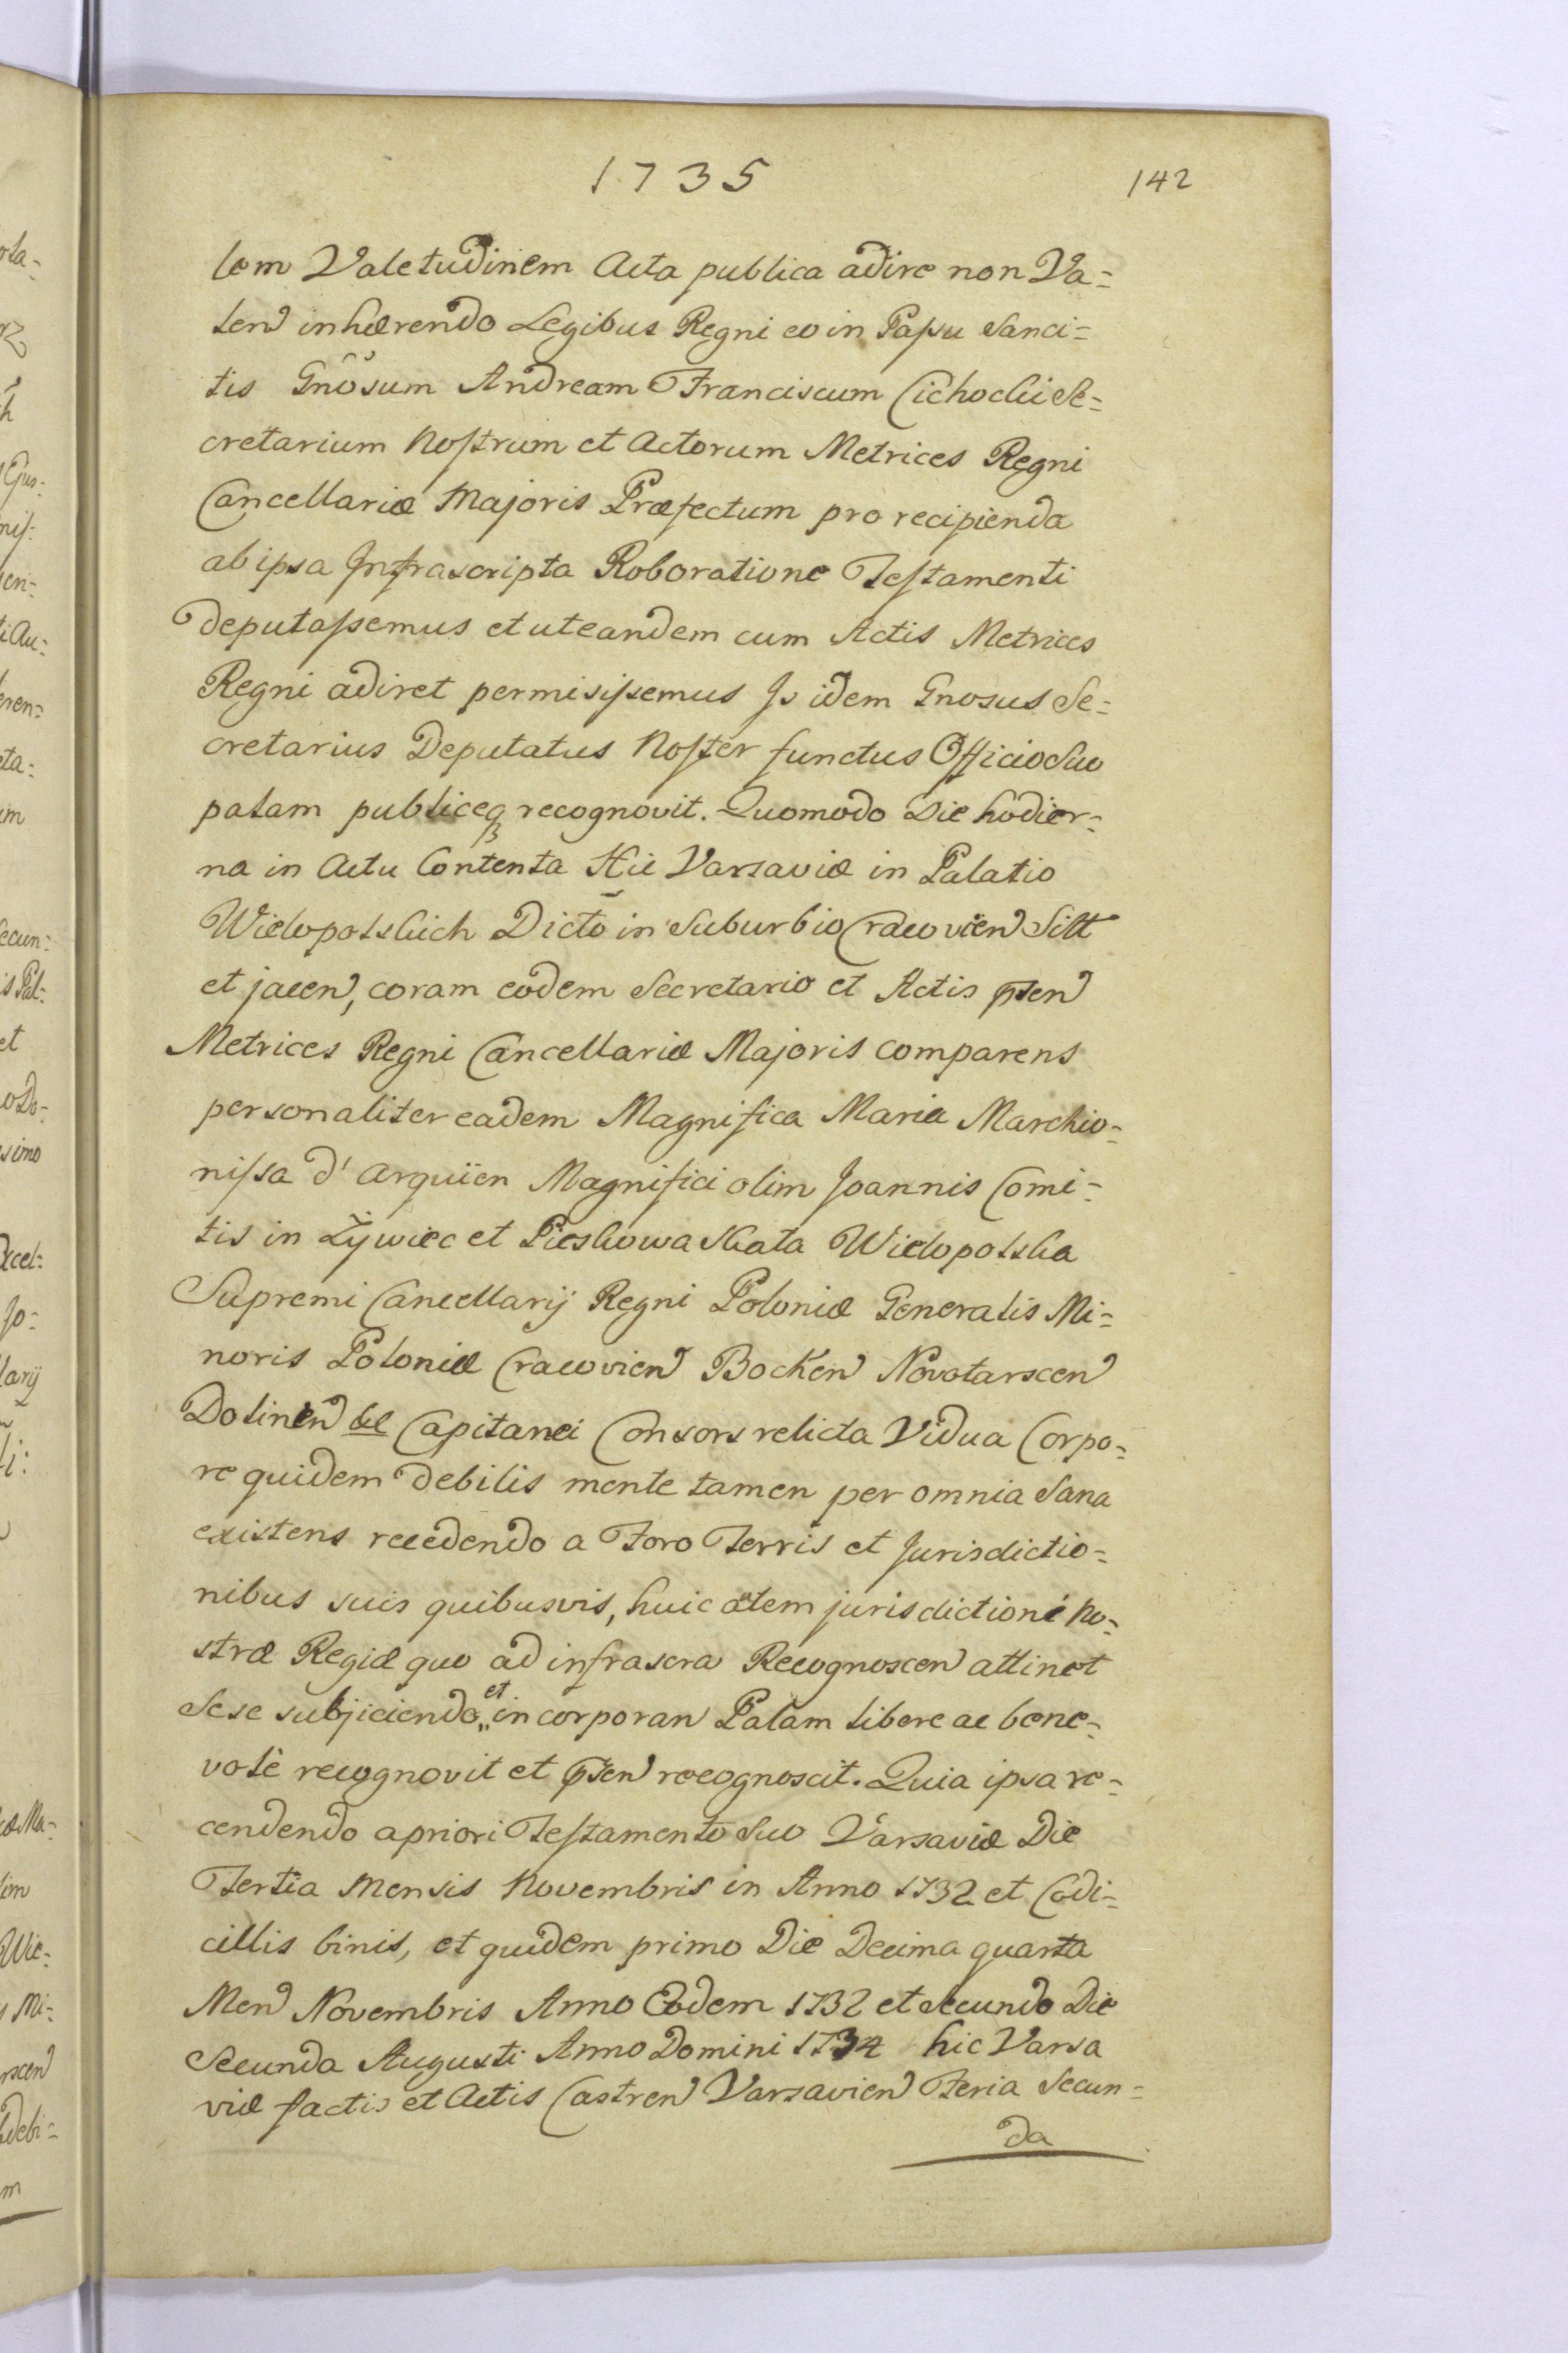 1735
142
lem Valetudinem Acta publica adire non Va=
len inhærendo Legibus Regni eo in Passu Sanci=
tis Gnõsum Andream Franciscum Cichocki Se=
cretarium Nostrum et Actorum Metrices Regni
Cancellariæ Majoris Præfectum pro recipienda
ab ipsa Infrascripta Roboratione Testamenti
deputassemus et ut eandem cum Actis Metrices
Regni adiret permisissemus Is idem Gnosus Se=
cretarius Deputatus Noster functus Officio Suo
palam publiceq recognovit. Quomodo Die hodier=
na in Actu Contenta Hic Varsaviæ in Palatio
Wielopolskich Dicto in Suburbio Cracovien Sitt
et jacen, coram eodem Secretario et Actis pñen
Metrices Regni Cancellariæ Majoris comparens
personaliter eadem Magnifica Maria Marchio=
nissa d' Arquien Magnifici olim Joannis Comi=
tis in Żywiec et Pieskowa Skała Wielopolska
Supremi Cancellarij Regni Poloniæ Generalis Mi=
noris Poloniæ Cracovien Bocken Novotarscen
Dolinen &c Capitanei Consors relicta Vidua Corpo=
re quidem debilis mente tamen per omnia Sana
existens recedendo a Foro Terris et Jurisdictio=
nibus suis quibusvis, huic atem jurisdictioni No=
stræ Regiæ quo ad infrascra Recognoscen attinet
Sese subjiciendo et incorporan Palam libere ac bene=
volè recognovit et pñen recognoscit. Quia ipsa re=
cendendo a priori Testamento Suo Varsaviæ Die
Tertia Mensis Novembris in Anno 1732 et Codi=
cillis binis, et quidem primo Die Decima quarta
Men Novembris Anno Eodem 1732 et Secundo Die
Secunda Augusti Anno Domini 1734 hic Varsa
viæ factis et Actis Castren Varsavien Feria Secun=
da